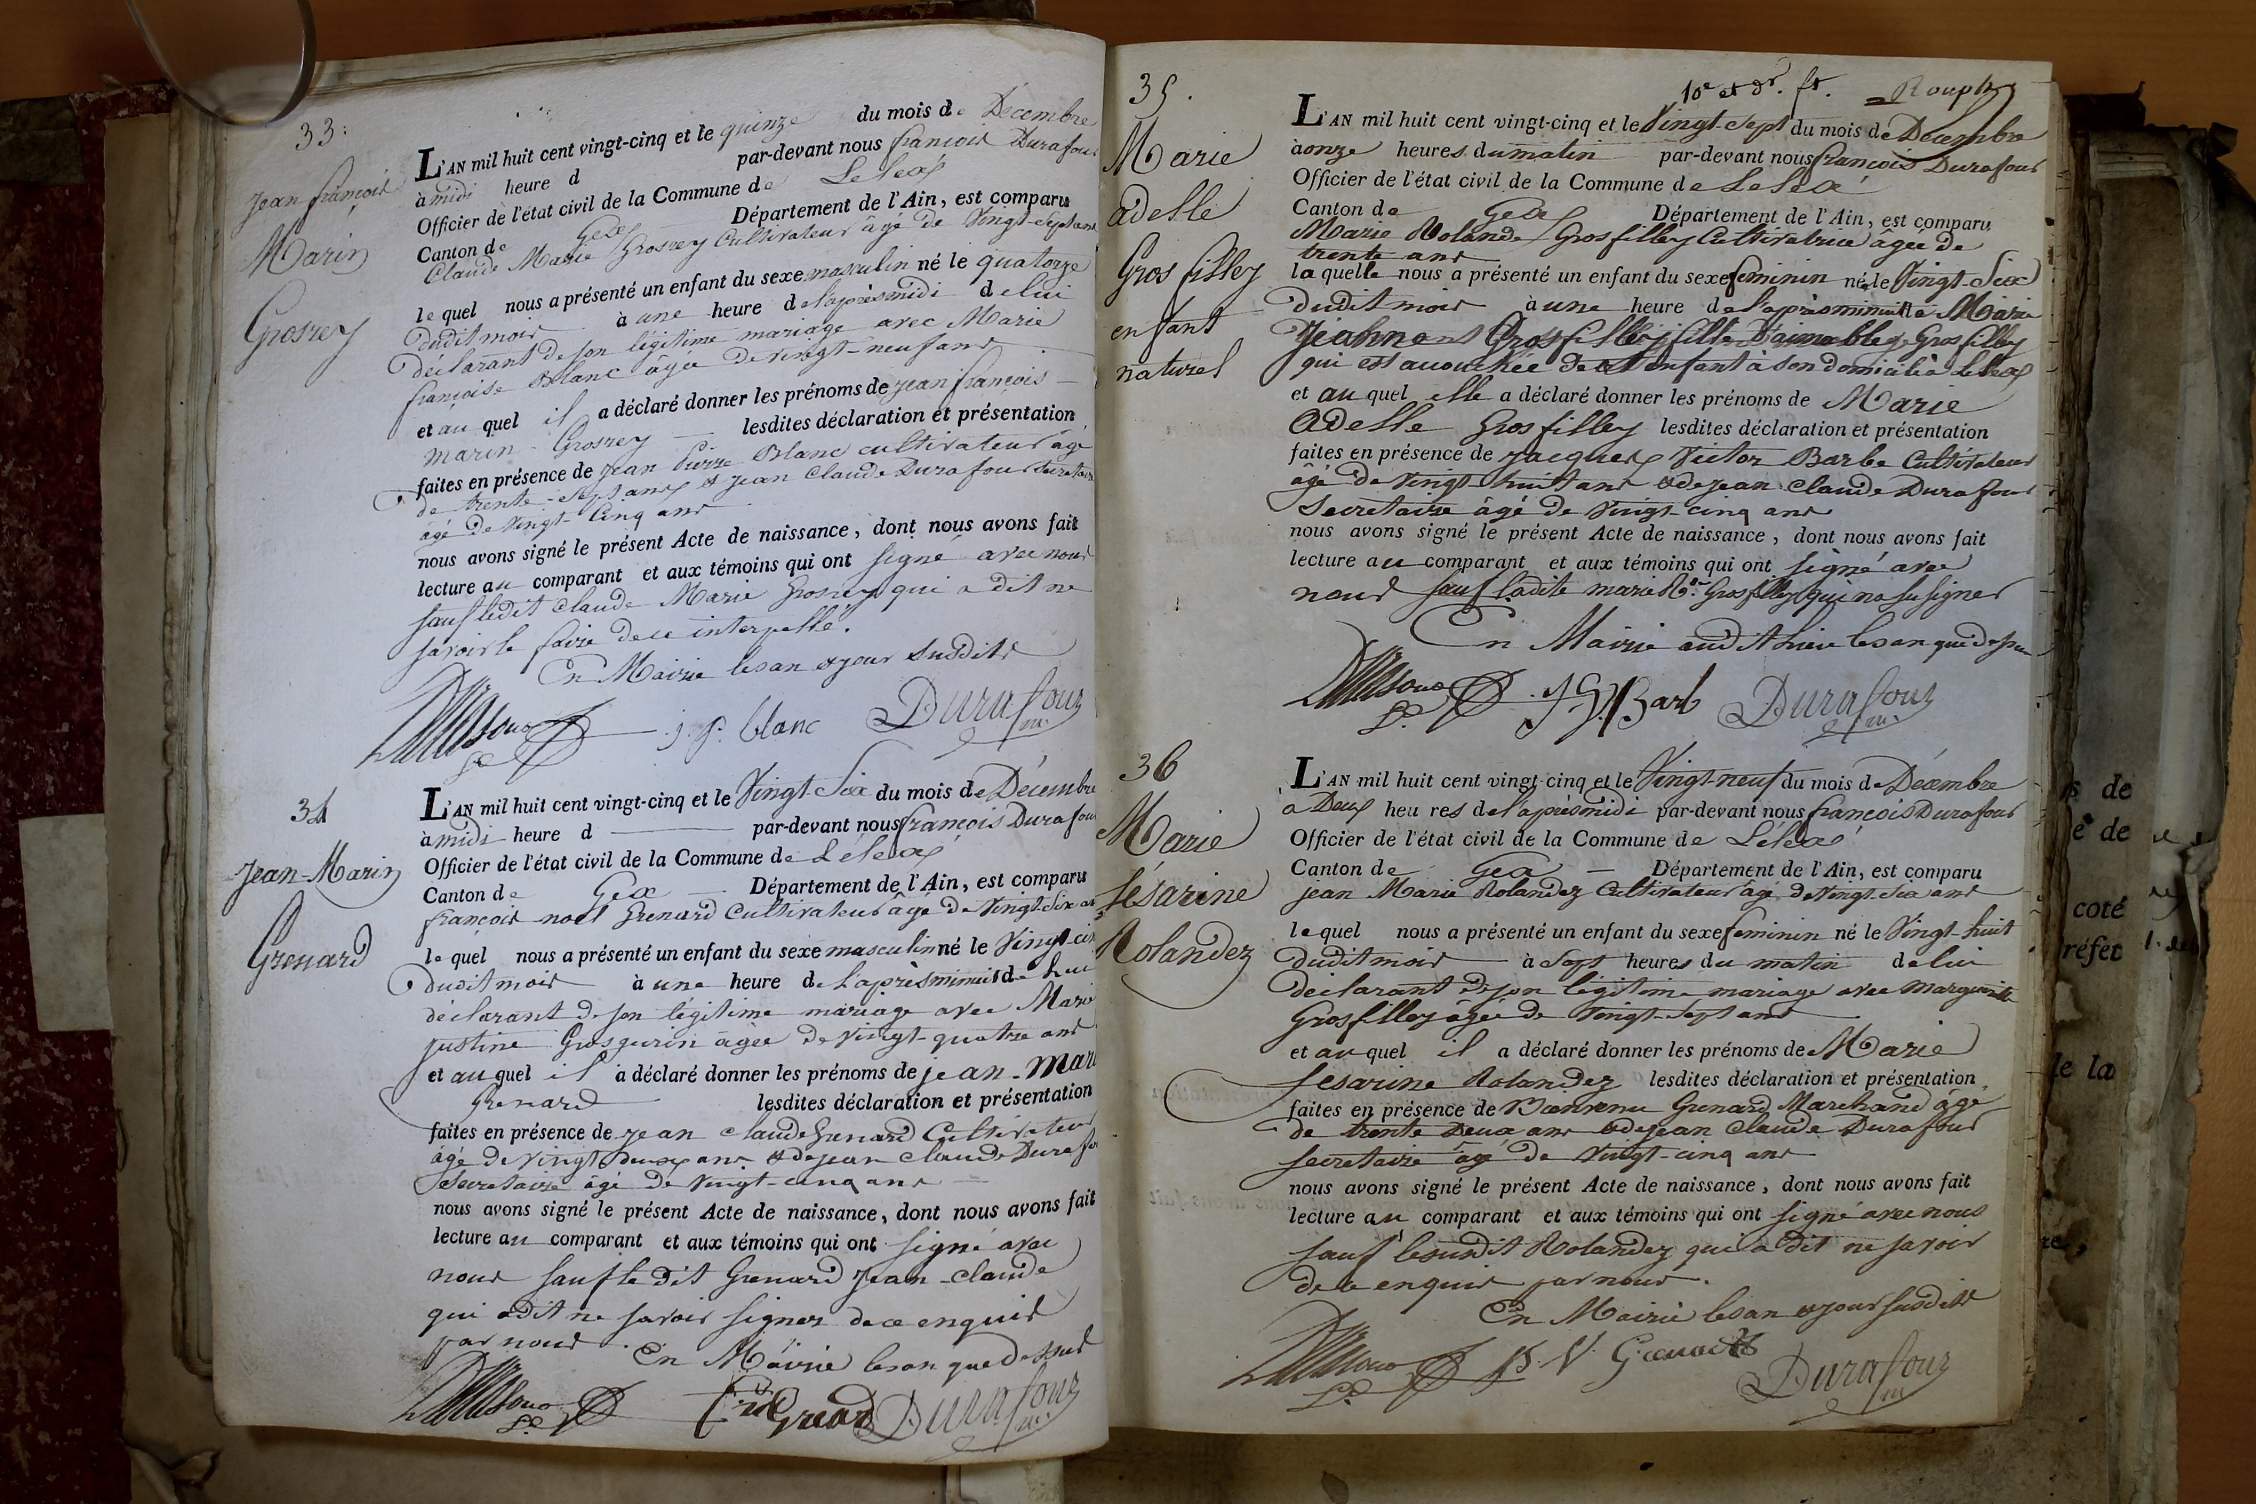 33.
Jean françois
Marin
Grosrey
L'AN mil huit cent vingt-cinq et le quinze du mois de Décembre
à midi heure d par-devant nous francois Durafour
Officier de l'état civil de la Commune de Leleax
Canton de Gex Département de l'Ain, est comparu
Claude Marie Grosrey Cultivateur âgé de Vingt-Sept ans
le quel nous a présenté un enfant du sexe masculin né le quatorze
dudit mois à une heure de l'après midi de lui
déclarant de son légitime mariage avec Marie
françoise Blanc âgée de vingt-neuf ans
et au quel il a déclaré donner les prénoms de jean françois
marin Grosrey lesdites déclaration et présentation
faites en présence de jean Pierre Blanc cultivateur âgé
de trente-sept ans & jean Claude Durafour Secretaire
âgé de Vingt-Cinq ans
nous avons signé le présent Acte de naissance, dont nous avons fait
lecture au comparant et aux témoins qui ont signé avec nous
sauf ledit Claude Marie Grosrey qui a dit ne
savoir le faire de ce interpellé.
En Mairie les an & jour susdits
j. p. blanc Durafour
34
Jean-Marin
Grenard
L'AN mil huit cent vingt-cinq et le Vingt-Six du mois de Décembre
à midi heure d par-devant nous françois Durafour
Officier de l'état civil de la Commune de Léleax
Canton de Gex Département de l'Ain, est comparu
françois noel Grenard Cultivateur âgé de Vingt-Six ans
le quel nous a présenté un enfant du sexe masculin né le Vingt-cin
dudit mois à une heure de l'après minuit de lui
déclarant de son légitime mariage avec Marie
justine Grosgurin âgée de vingt-quatre ans
et au quel il a déclaré donner les prénoms de jean-mari
Grenard lesdites déclaration et présentation
faites en présence de jean claude Grenard Cultivateur
âgé de Vingt deux ans & de jean Claude Durafour
Secretaire âgé de Vingt-cinq ans
nous avons signé le présent Acte de naissance, dont nous avons fait
lecture au comparant et aux témoins qui ont signé avec
nous sauf le dit Grenard jean-claude
qui a dit ne savoir signer de ce enquis
par nous. En Mairie les an que dessus
Durafour
10e et dr. ft.
35.
Marie
adelle
Gros filley
enfant
naturel
L'AN mil huit cent vingt-cinq et le Vingt-Sept du mois de Décembre
à onze heures du matin par-devant nous francois Durafour
Officier de l'état civil de la Commune de Leleax
Canton de Gex Département de l'Ain, est comparu
Marie Rolande Grosfilley Cultivatrice âgée de
trente ans
la quelle nous a présenté un enfant du sexe feminin né le Vingt-Six
dudit mois à une heure de l'après minuit de Marie
Jeanne Grosfilley fille d'aimable Grosfilley
qui est accouchée de cet enfant à son domicile à Leleax
et au quel elle a déclaré donner les prénoms de Marie
Adelle Grosfilley lesdites déclaration et présentation
faites en présence de jacques Victor Barbe Cultivateur
âgé de Vingt-huit ans & de jean claude Durafour
Secretaire âgé de Vingt-cinq ans
nous avons signé le présent Acte de naissance, dont nous avons fait
lecture au comparant et aux témoins qui ont signé avec
nous sauf ladite marie Re. Grosfilley qui n'a su signer
En Mairie audit lieu les an que dessus
Barb Durafour
36
Marie
Césarine
Rolandez
L'AN mil huit cent vingt-cinq et le Vingt-neuf du mois de Décembre
à Deux heures de l'après midi par-devant nous francois Durafour
Officier de l'état civil de la Commune de Léleax
Canton de Gex Département de l'Ain, est comparu
jean Marie Rolandez Cultivateur âgé de Vingt-Six ans
le quel nous a présenté un enfant du sexe feminin né le Vingt-huit
dudit mois à Sept heures du matin de lui
déclarant de son légitime mariage avec Marguerite
Grosfilley âgée de Vingt-Sept ans
et au quel il a déclaré donner les prénoms de Marie
Cesarine Rolandez lesdites déclaration et présentation
faites en présence de Bienvenu Grenard Marchand âgé
de trente Deux ans & de jean Claude Durafour
Secretaire âgé de Vingt-cinq ans
nous avons signé le présent Acte de naissance, dont nous avons fait
lecture au comparant et aux témoins qui ont signé avec nous
sauf lesusdit Rolandez qui a dit ne savoir
de ce enquis par nous.
En Mairie les an & jour susdits
Durafour
s de
e de
coté
réfet
de la
re,